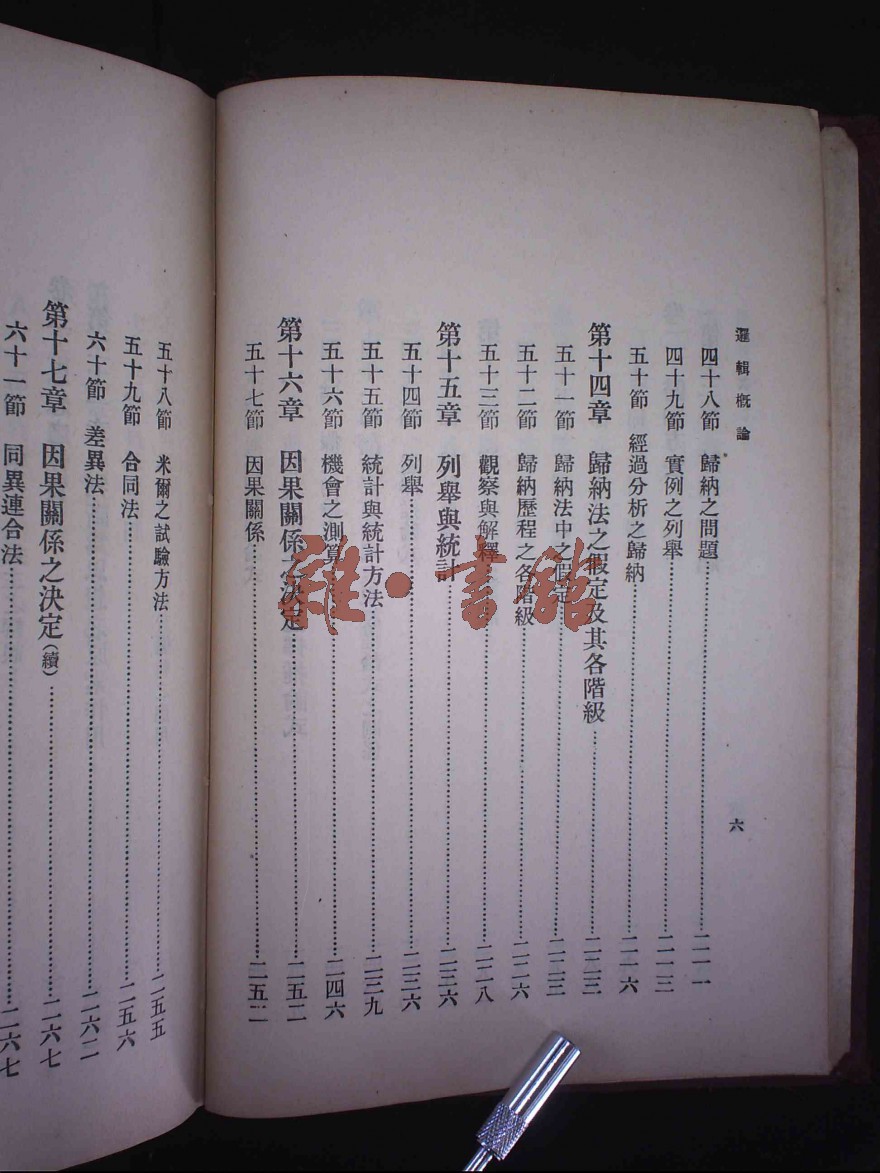 邏輯概論
六
四十八節 歸納之問題……二一一
四十九節 實例之列舉……二一三
五十節 經過分析之歸納……二一六
第十四章 歸納法之假定及其各階級……二二三
五十一節 歸納法中之假定……二二三
五十二節 歸納歷程之各階級……二二六
五十三節 觀察與解釋……二二八
第十五章 列舉與統計……二三六
五十四節 列舉……二三六
五十五節 統計與統計方法……二三九
五十六節 機會之測算……二四六
第十六章 因果關係之決定……二五二
五十七節 因果關係……二五二
五十八節 米爾之試驗方法……二五五
五十九節 合同法……二五六
六十節 差異法……二六二
第十七章 因果關係之決定(續)……二六七
六十一節 同異連合法……二六七
雜·書館